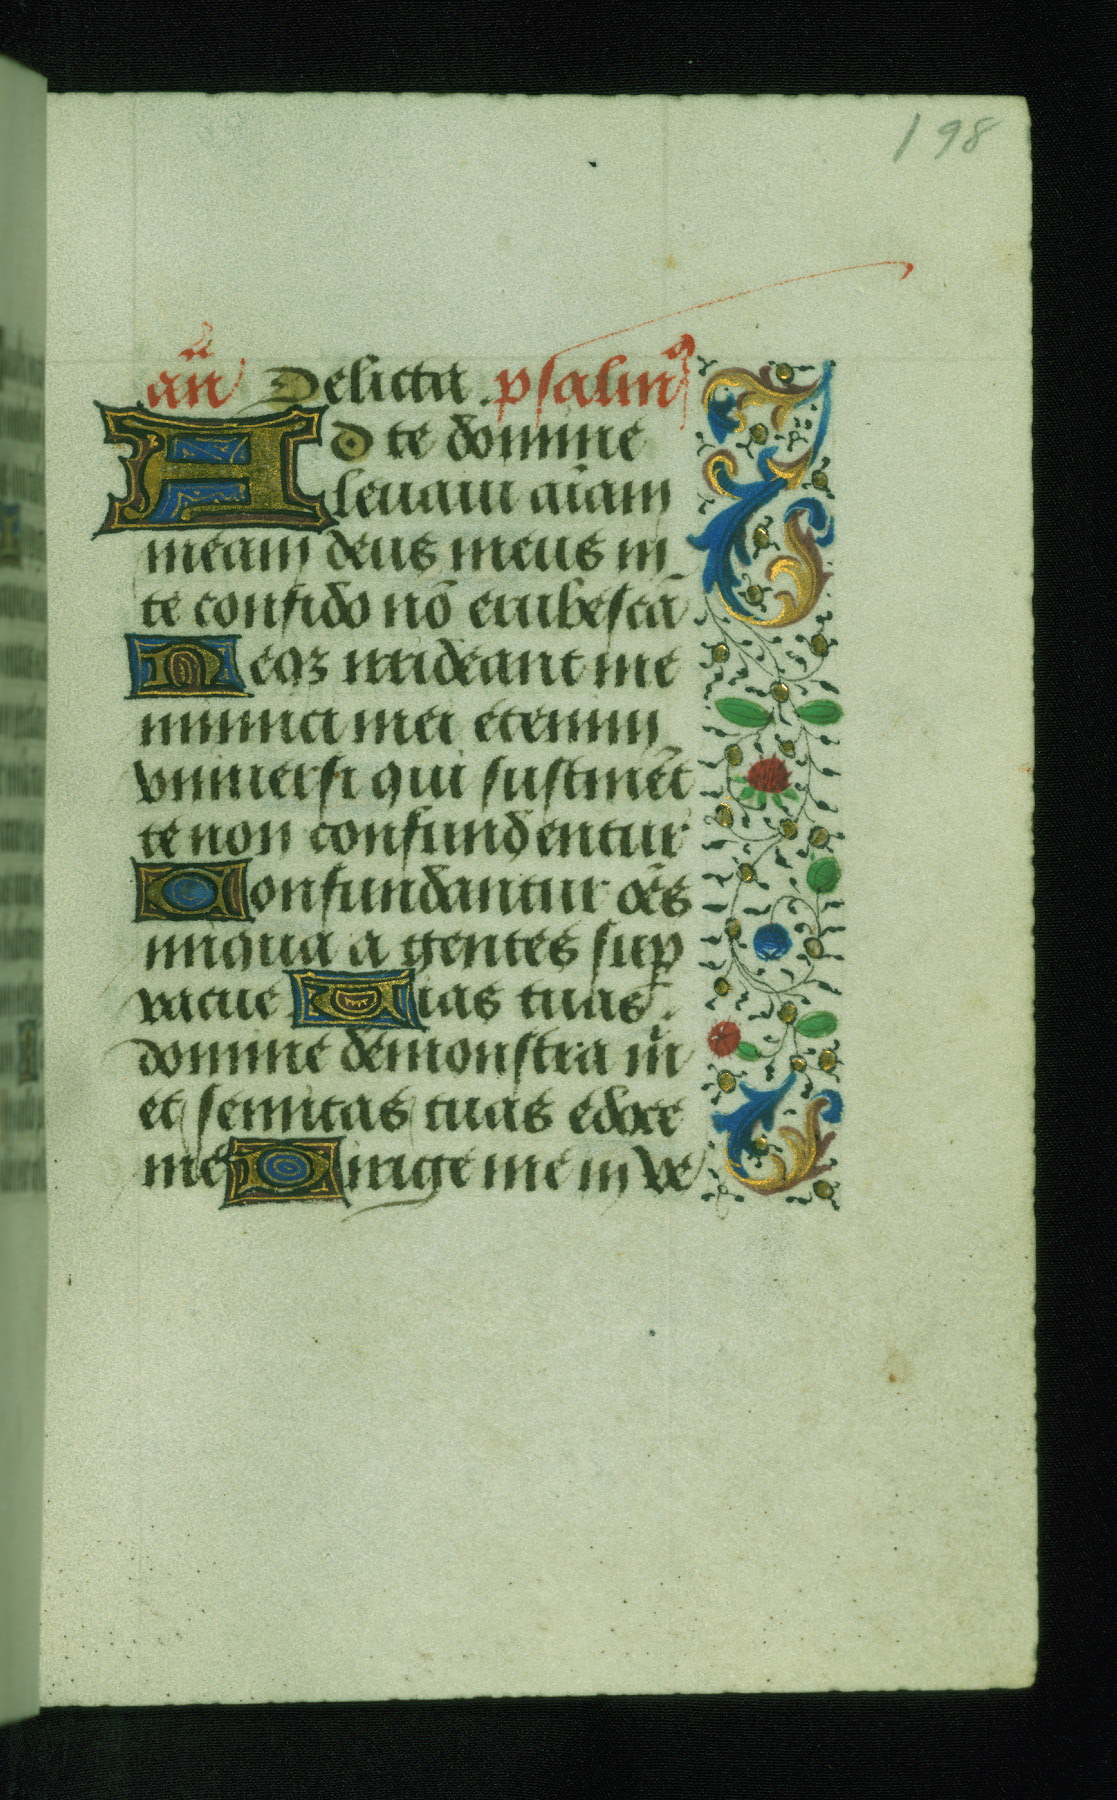 198
añ Delicta. psalm9
Ad te domine
leuaui aīam
meam deus meus in
te confido nō erubescā
Neqz irrideant me
inimici mei etenim
vniuersi qui sustinēt
te non confundentur
Confundantur oēs
iniqua a gentes sup
vacue Vias tuas
domine demonstra m̄
et semitas tuas edoce
me Dirige me in ve